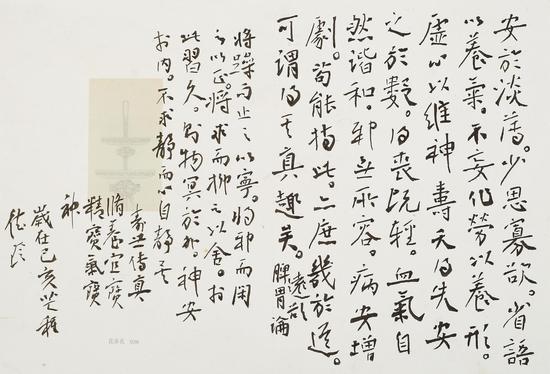 安於淡薄。少思寡欲。省語
以養氣。不妄作勞以養形。
虛心以維神壽夭得失安
之於數。得喪既輕。血氣自
然谐和。邪無所容。病安增
劇。苟能持此。亦庶幾於道。
可謂得其真趣矣。遠欲
脾胃論
将躁而止之以寧。将邪而閑
之以正。将求而抑之以舍。於
此習久。則物冥於外。神安
於内。不求靜而心自靜矣
壽世傳真
修養宜寶
精寶氣寶
神
歲在己亥芒種